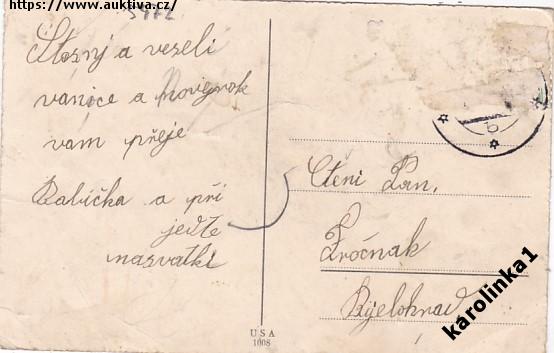 https://www.auktiva.cz/
5472
Stasný a veselí
vánoce a Novejrok
vám přeje
Babička a při
jedte
nasvatki
Ctěni Pan,
Fročnak
Bjelohrad
b
USA
1008
karolinka1